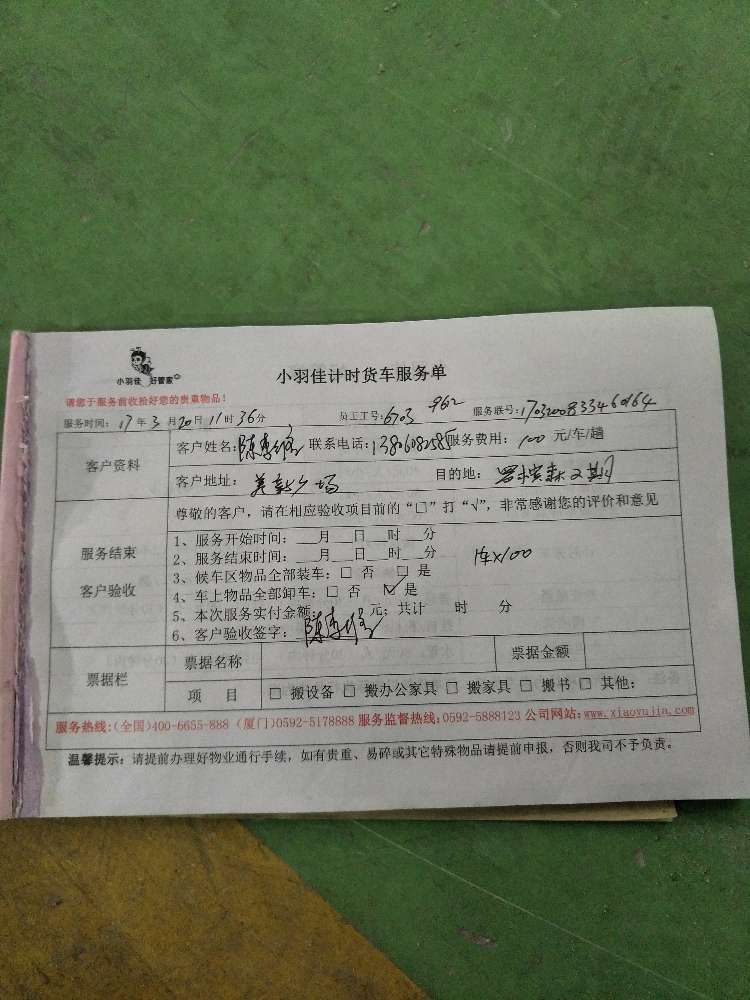 小羽佳 好管家
小羽佳计时货车服务单
请您于服务前收拾好您的贵重物品!
服务时间: 17年3月20日11时36分 员工工号: 6703 962 服务联号: 1703200833460164
客户资料
客户姓名: 陈 联系电话: 服务费用: 100 元/车/趟
客户地址: 美新广场 目的地: 罗宾森又期
尊敬的客户，请在相应验收项目前的“□”打“√”，非常感谢您的评价和意见
服务结束
客户验收
1、服务开始时间: __月__日__时__分
2、服务结束时间: __月__日__时__分
1车×100
3、候车区物品全部装车: □ 否 □ 是
4、车上物品全部卸车: □ 否 ☑ 是
5、本次服务实付金额: 元; 共计 时 分
6、客户验收签字: 陈
票据栏
票据名称 票据金额
项 目 □ 搬设备 □ 搬办公家具 □ 搬家具 □ 搬书 □ 其他:
服务热线:(全国)400-6655-888 (厦门)0592-5178888 服务监督热线:0592-5888123 公司网站:www.xiaoyujia.com
温馨提示: 请提前办理好物业通行手续，如有贵重、易碎或其它特殊物品请提前申报，否则我司不予负责。